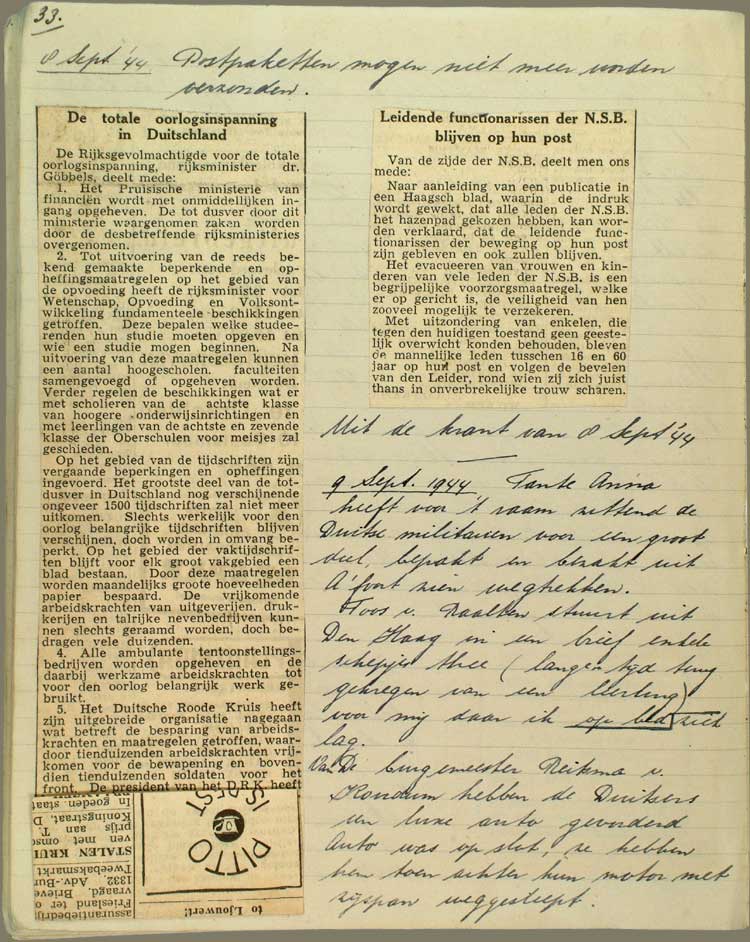 33.
8 Sept '44 Postpaketten mogen niet meer worden
verzonden.
De totale oorlogsinspanning
in Duitschland
De Rijksgevolmachtigde voor de totale
oorlogsinspanning, rijksminister dr.
Göbbels, deelt mede:
1. Het Pruisische ministerie van
financiën wordt met onmiddellijken in-
gang opgeheven. De tot dusver door dit
ministerie waargenomen zaken worden
door de desbetreffende rijksministeries
overgenomen.
2. Tot uitvoering van de reeds be-
kend gemaakte beperkende en op-
heffingsmaatregelen op het gebied van
de opvoeding heeft de rijksminister voor
Wetenschap, Opvoeding en Volksont-
wikkeling fundamenteele beschikkingen
getroffen. Deze bepalen welke studee-
renden hun studie moeten opgeven en
wie een studie mogen beginnen. Na
uitvoering van deze maatregelen kunnen
een aantal hoogescholen. faculteiten
samengevoegd of opgeheven worden.
Verder regelen de beschikkingen wat er
met scholieren van de achtste klasse
van hoogere onderwijsinrichtingen en
met leerlingen van de achtste en zevende
klasse der Oberschulen voor meisjes zal
geschieden.
Op het gebied van de tijdschriften zijn
vergaande beperkingen en opheffingen
ingevoerd. Het grootste deel van de tot-
dusver in Duitschland nog verschijnende
ongeveer 1500 tijdschriften zal niet meer
uitkomen. Slechts werkelijk voor den
oorlog belangrijke tijdschriften blijven
verschijnen, doch worden in omvang be-
perkt. Op het gebied der vaktijdschrif-
ten blijft voor elk groot vakgebied een
blad bestaan. Door deze maatregelen
worden maandelijks groote hoeveelheden
papier bespaard. De vrijkomende
arbeidskrachten van uitgeverijen. druk-
kerijen en talrijke nevenbedrijven kun-
nen slechts geraamd worden, doch be-
dragen vele duizenden.
4. Alle ambulante tentoonstellings-
bedrijven worden opgeheven en de
daarbij werkzame arbeidskrachten tot
voor den oorlog belangrijk werk ge-
bruikt.
5. Het Duitsche Roode Kruis heeft
zijn uitgebreide organisatie nagegaan
wat betreft de besparing van arbeids-
krachten en maatregelen getroffen, waar-
door tienduizenden arbeidskrachten vrij-
komen voor de bewapening en boven-
dien tienduizenden soldaten voor het
front. De president van het D.R.K. heeft
Leidende functionarissen der N.S.B.
blijven op hun post
Van de zijde der N.S.B. deelt men ons
mede:
Naar aanleiding van een publicatie in
een Haagsch blad, waarin de indruk
wordt gewekt, dat alle leden der N.S.B.
het hazenpad gekozen hebben, kan wor-
den verklaard, dat de leidende func-
tionarissen der beweging op hun post
zijn gebleven en ook zullen blijven.
Het evacueeren van vrouwen en kin-
deren van vele leden der N.S.B. is een
begrijpelijke voorzorgsmaatregel, welke
er op gericht is, de veiligheid van hen
zooveel mogelijk te verzekeren.
Met uitzondering van enkelen, die
tegen den huidigen toestand geen geeste-
lijk overwicht konden behouden, bleven
de mannelijke leden tusschen 16 en 60
jaar op hun post en volgen de bevelen
van den Leider, rond wien zij zich juist
thans in onverbrekelijke trouw scharen.
Uit de krant van 8 Sept '44
9 Sept. 1944 Tante Anna
heeft voor 't raam zittend de
Duitse militairen voor een groot
deel, bepakt en bezakt uit
A'foort zien wegtrekken.
Toos v. Raalten stuurt uit
Den Haag in een brief enkele
schepjes thee (langen tijd terug
gekregen van een leerling)
voor mij daar ik op bed ziek
lag.
Van De burgemeester Reikma v.
hebben de Duitsers
een luxe auto gevorderd
Auto was op slot, ze hebben
hem toen achter hun motor met
zijspan weggesleept.
to Ljouwert!
PITTO
IS ÀFEST
assurantiebedrij
Friesland ter o
vraagd. Brieve
1332, Adv.-Bur
Tweebaksmarkt
STALEN KRUI
ven met omsc
prijs aan T.
Koningstraat, D
In goeden staat